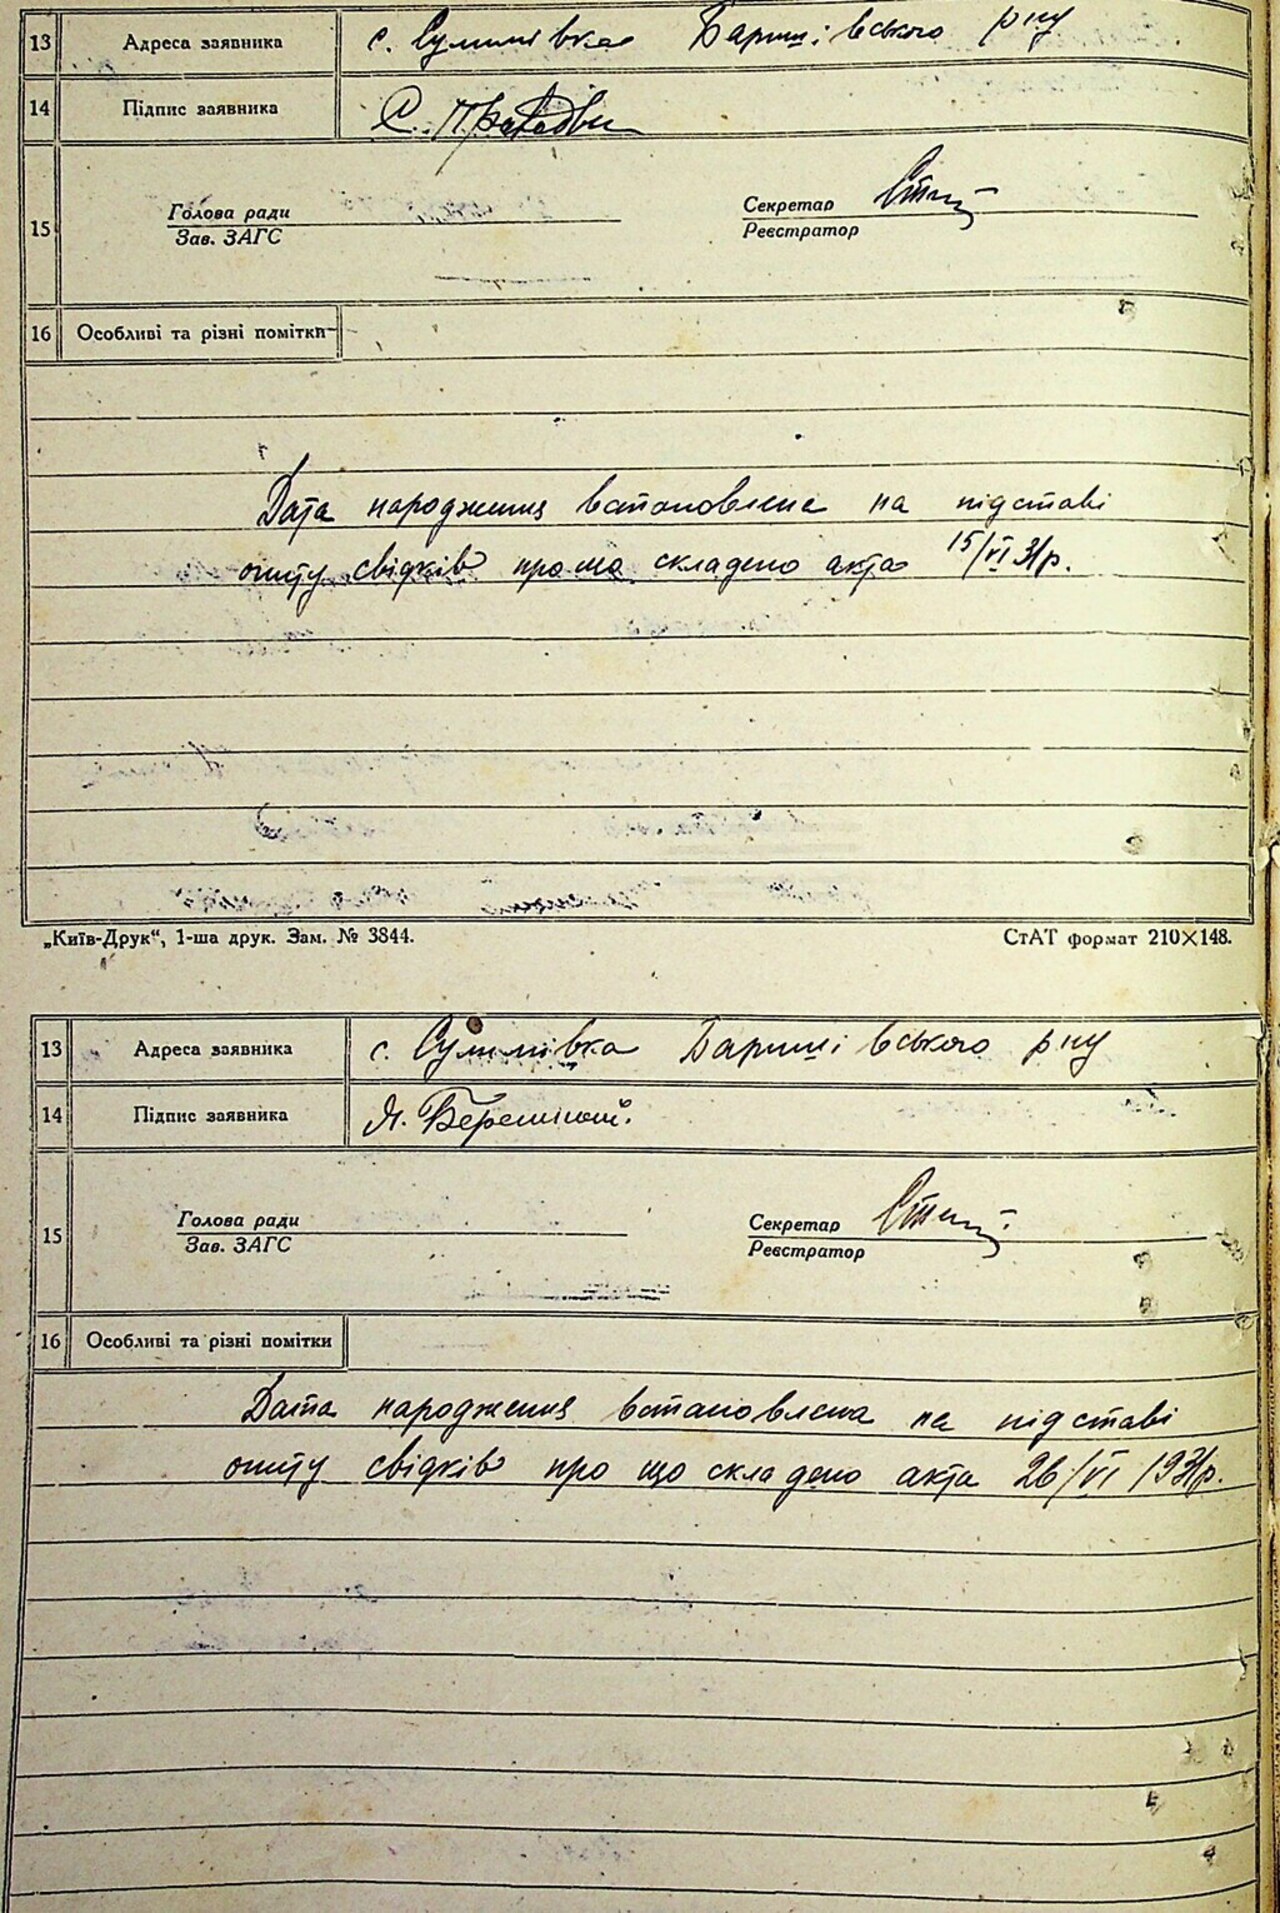 13 Адреса заявника с. Сулимівка Баришівського рну
14 Підпис заявника С.
15 Голова ради Секретар
Зав. ЗАГС Реєстратор
16 Особливі та різні помітки
Дата народження встановлена на підставі
опиту свідків про що складено акта 15/VI 31р.
„Київ-Друк“, 1-ша друк. Зам. № 3844. СтАТ формат 210×148.
13 Адреса заявника с. Сулимівка Баришівського рну
14 Підпис заявника
15 Голова ради Секретар
Зав. ЗАГС Реєстратор
16 Особливі та різні помітки
Дата народження встановлена на підставі
опиту свідків про що складено акта 26/VI 1931р.